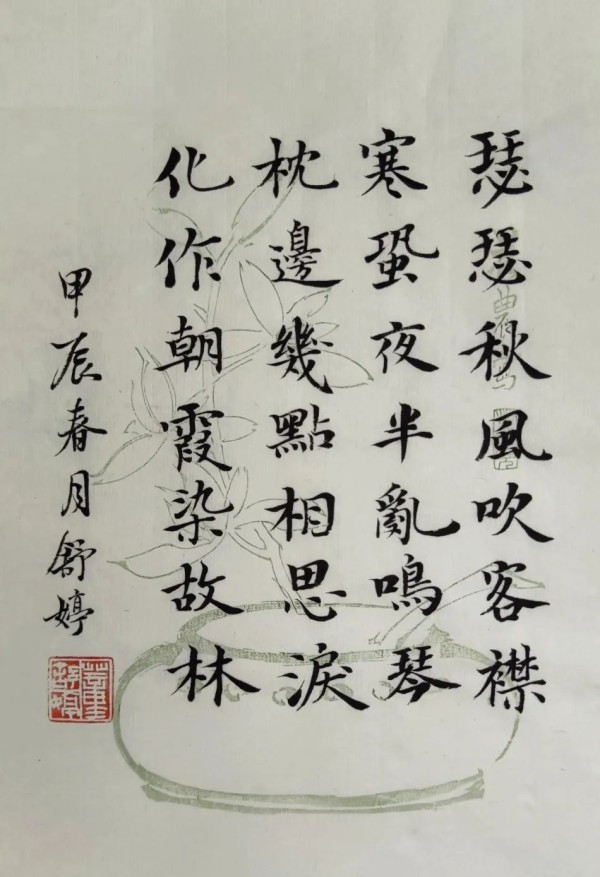 瑟瑟秋風吹客襟
寒蛩夜半亂鳴琴
枕邊幾點相思淚
化作朝霞染故林
甲辰春月舒婷
董舒婷